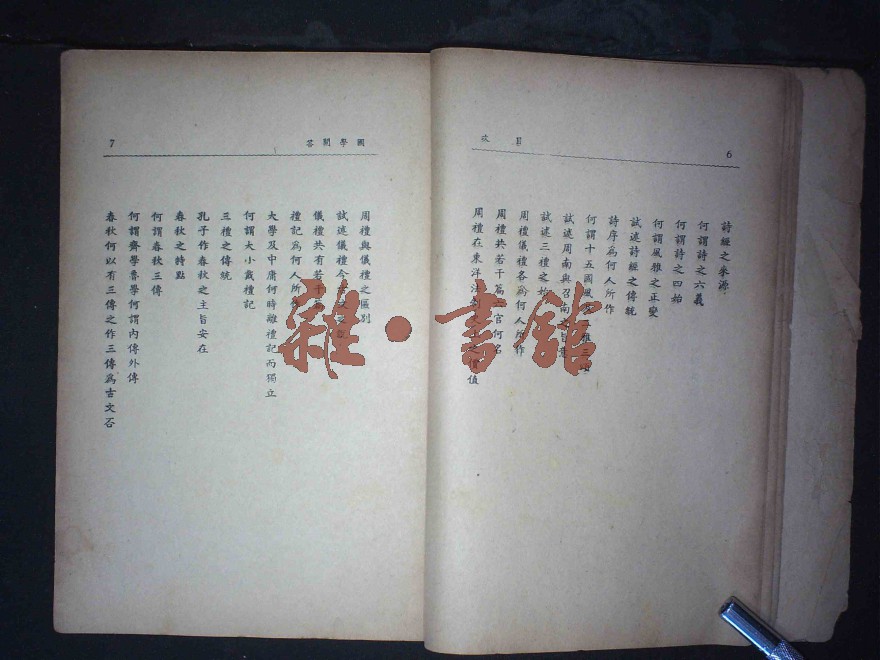 目次
6
詩經之來源
何謂詩之六義
何謂詩之四始
何謂風雅之正變
試述詩經之傳統
詩序爲何人所作
何謂十五國風
試述周南與召南之
試述三禮之始
周禮儀禮各爲何人所作
周禮共若干篇六官何名
周禮在東洋法 價值
國學問答
7
周禮與儀禮之區別
試述儀禮今
儀禮共有若干
禮記爲何人所
大學及中庸何時離禮記而獨立
何謂大小戴禮記
三禮之傳統
孔子作春秋之主旨安在
春秋之特點
何謂春秋三傳
何謂齊學魯學何謂內傳外傳
春秋何以有三傳之作三傳爲古文否
雜·書館